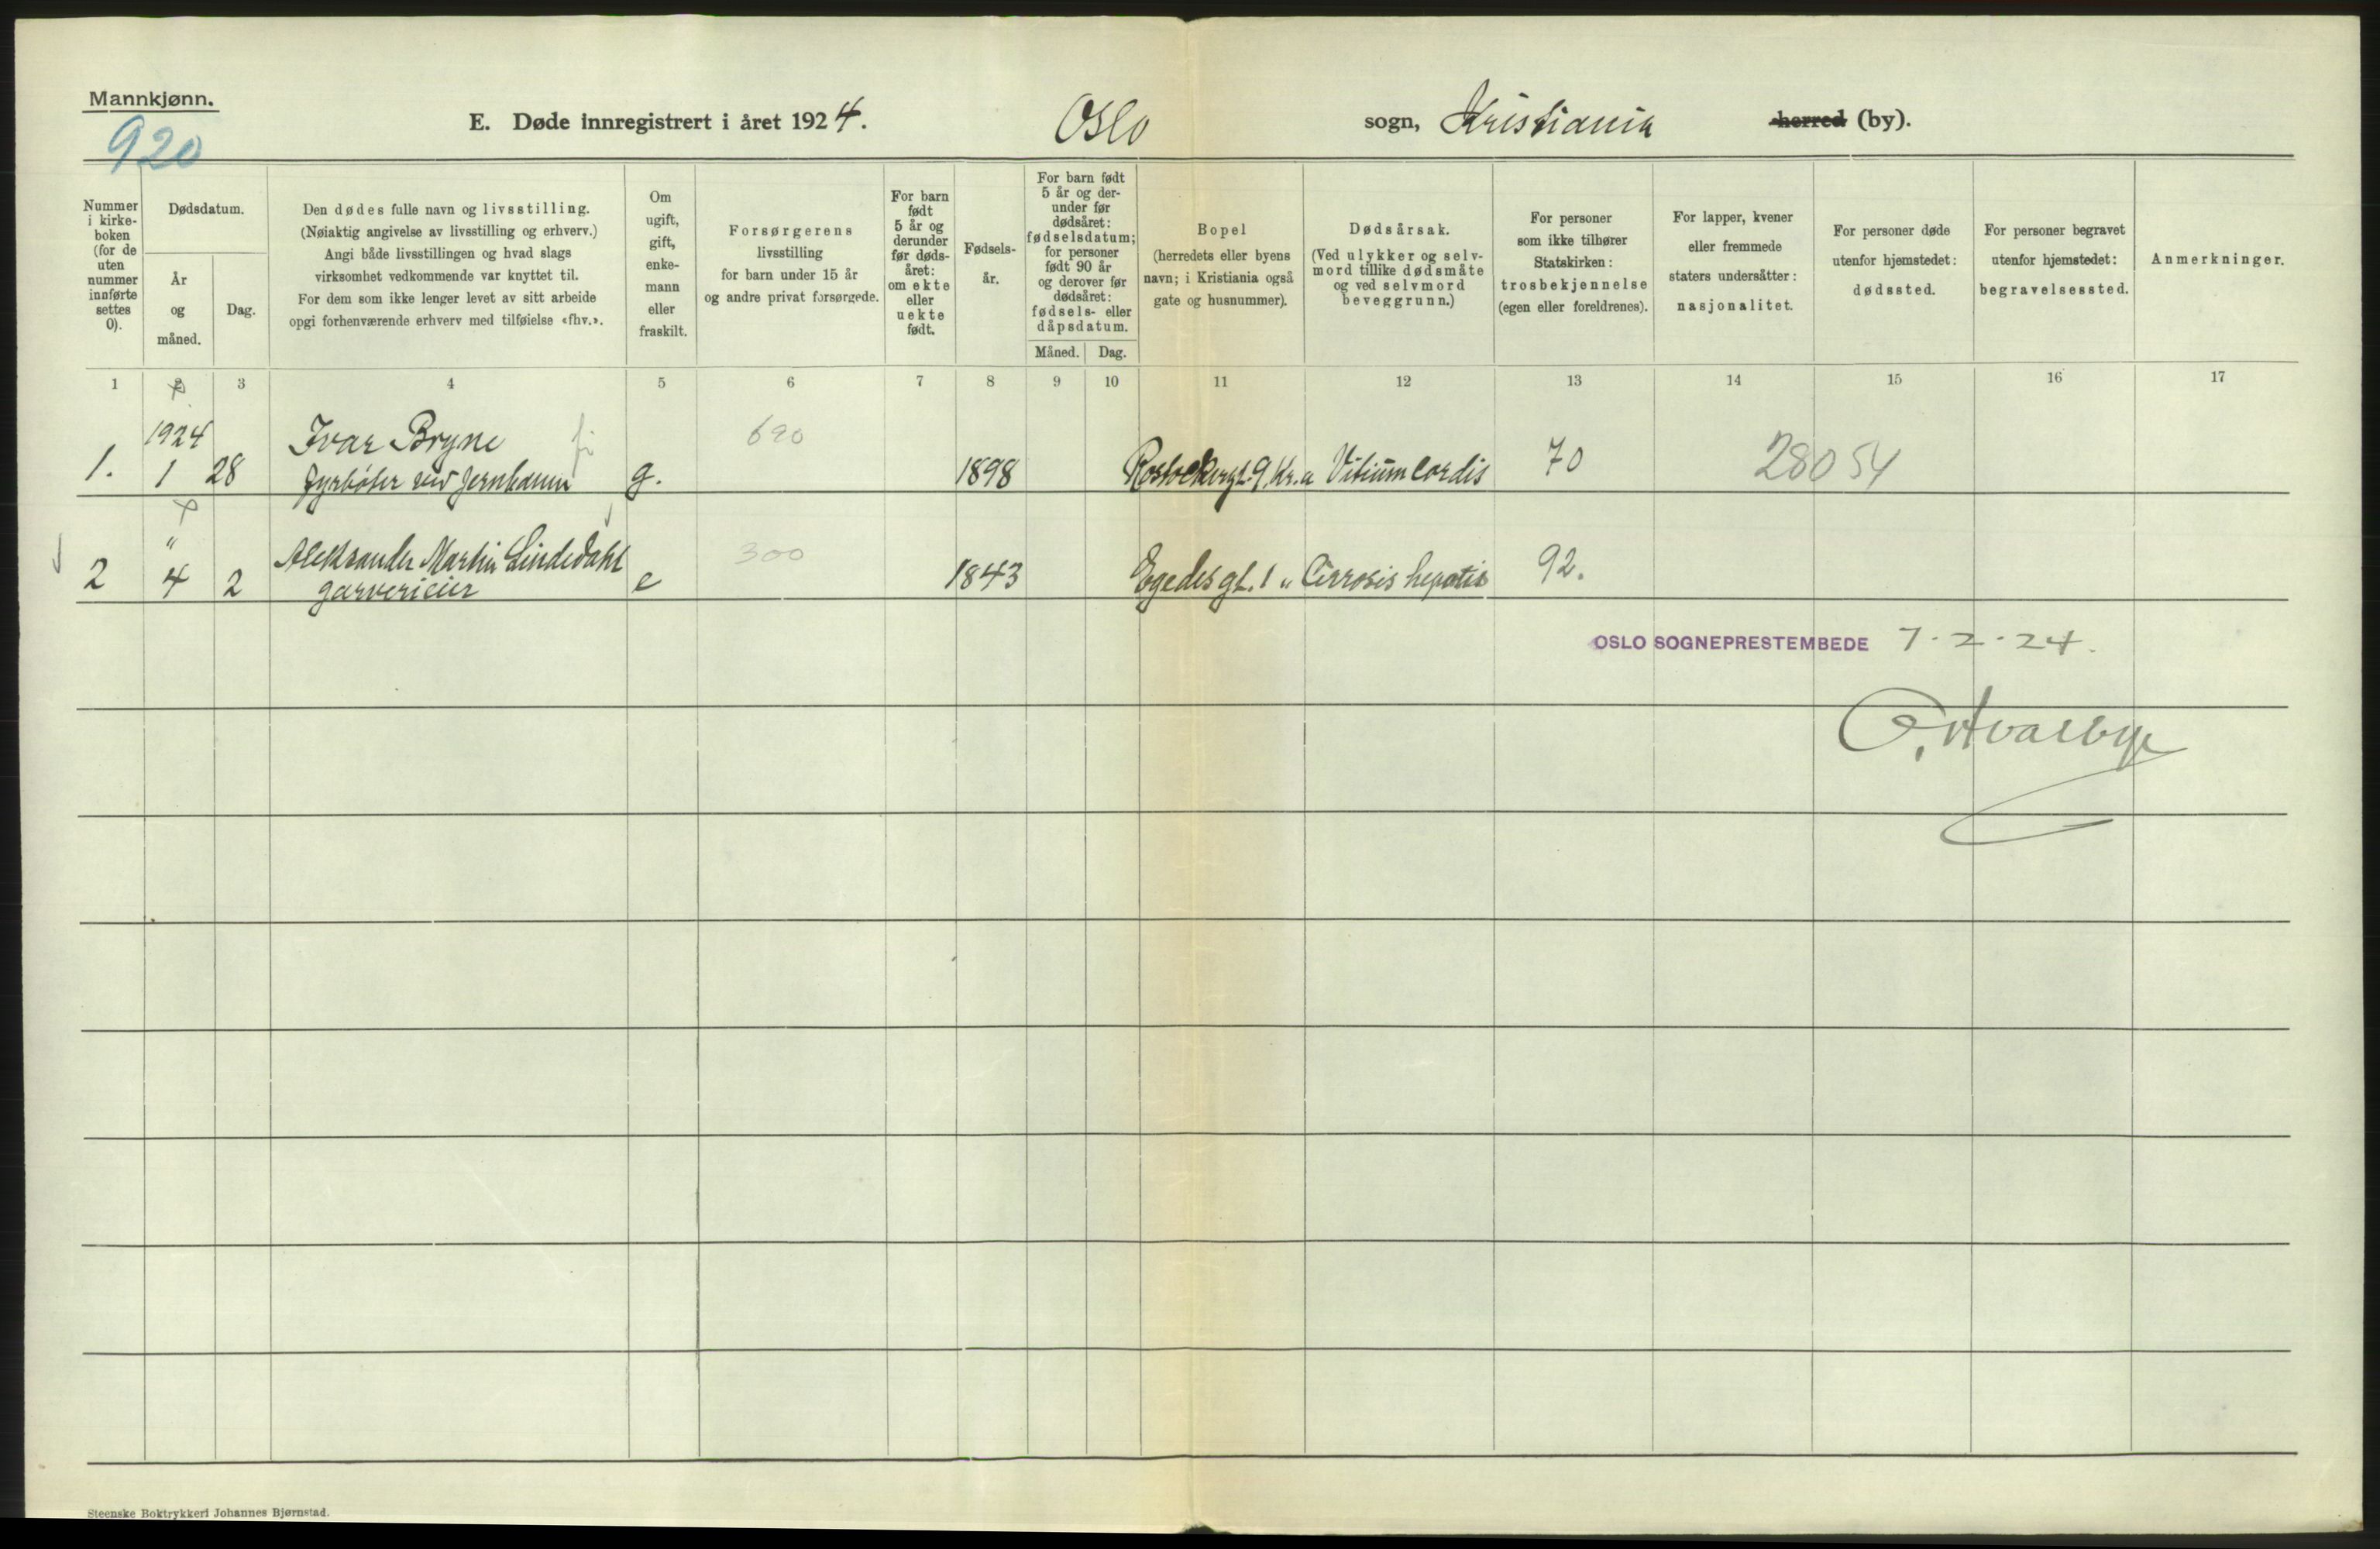 Mannkjønn.
920
E. Døde innregistrert i året 1924.
Oslo sogn, Kristiania herred (by).
Nummer i kirke-boken (for de uten nummer innførte settes 0).
Dødsdatum.
År og måned.
Dag.
Den dødes fulle navn og livsstilling.
(Nøiaktig angivelse av livsstilling og erhverv.)
Angi både livsstillingen og hvad slags
virksomhet vedkommende var knyttet til.
For dem som ikke lenger levet av sitt arbeide
opgi forhenværende erhverv med tilføielse «fhv.».
Om ugift, gift, enke-mann eller fraskilt.
Forsørgerens
livsstilling
for barn under 15 år
og andre privat forsørgede.
For barn født 5 år og derunder før døds-året: om ekte eller uekte født.
Fødsels-år.
For barn født 5 år og der-under før dødsåret: fødselsdatum; for personer født 90 år og derover før dødsåret: fødsels- eller dåpsdatum.
Måned. Dag.
Bopel
(herredets eller byens
navn; i Kristiania også
gate og husnummer).
Dødsårsak.
(Ved ulykker og selv-
mord tillike dødsmåte
og ved selvmord
beveggrunn.)
For personer
som ikke tilhører
Statskirken:
trosbekjennelse
(egen eller foreldrenes).
For lapper, kvener
eller fremmede
staters undersåtter:
nasjonalitet.
For personer døde
utenfor hjemstedet:
dødssted.
For personer begravet
utenfor hjemstedet:
begravelsessted.
Anmerkninger.
1 2 3 4 5 6 7 8 9 10 11 12 13 14 15 16 17
1924 Ivar Bryne 690
1. 1 28 fyrbøter ved Jernbanen g. 1898 Rostockergt. 9, Kr.a Vitium Cordis 70 28054
" Aleksander Martin Lindedahl 300
2 4 2 garverieier e 1843 Egedes gt. 1 " Cirrosis hepatis 92.
OSLO SOGNEPRESTEMBEDE 7-2-24.
Steenske Boktrykkeri Johannes Bjørnstad.